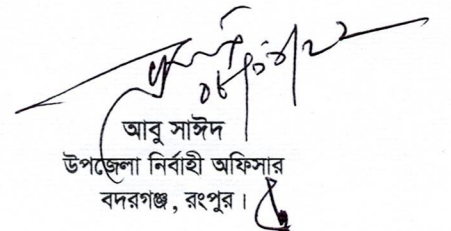 আবু সাঈদ
উপজেলা নির্বাহী অফিসার
বদরগঞ্জ, রংপুর।